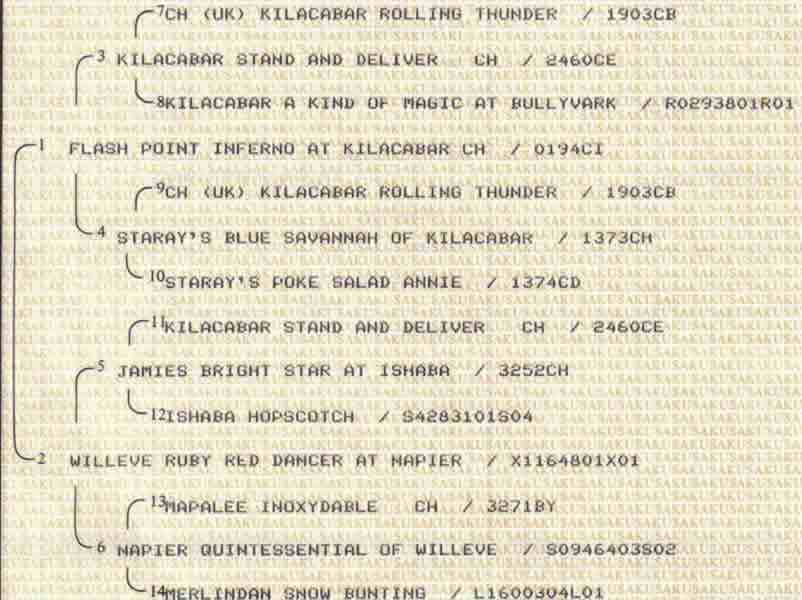 7CH (UK) KILACABAR ROLLING THUNDER / 1903CB
3 KILACABAR STAND AND DELIVER CH / 2460CE
8KILACABAR A KIND OF MAGIC AT BULLYVARK / R0293801R01
1 FLASH POINT INFERNO AT KILACABAR CH / 0194CI
9CH (UK) KILACABAR ROLLING THUNDER / 1903CB
4 STARAY'S BLUE SAVANNAH OF KILACABAR / 1373CH
10STARAY'S POKE SALAD ANNIE / 1374CD
11KILACABAR STAND AND DELIVER CH / 2460CE
5 JAMIES BRIGHT STAR AT ISHABA / 3252CH
12ISHABA HOPSCOTCH / S4283101S04
2 WILLEVE RUBY RED DANCER AT NAPIER / X1164801X01
13MAPALEE INOXYDABLE CH / 3271BY
6 NAPIER QUINTESSENTIAL OF WILLEVE / S0946403S02
14MERLINDAN SNOW BUNTING / L1600304L01